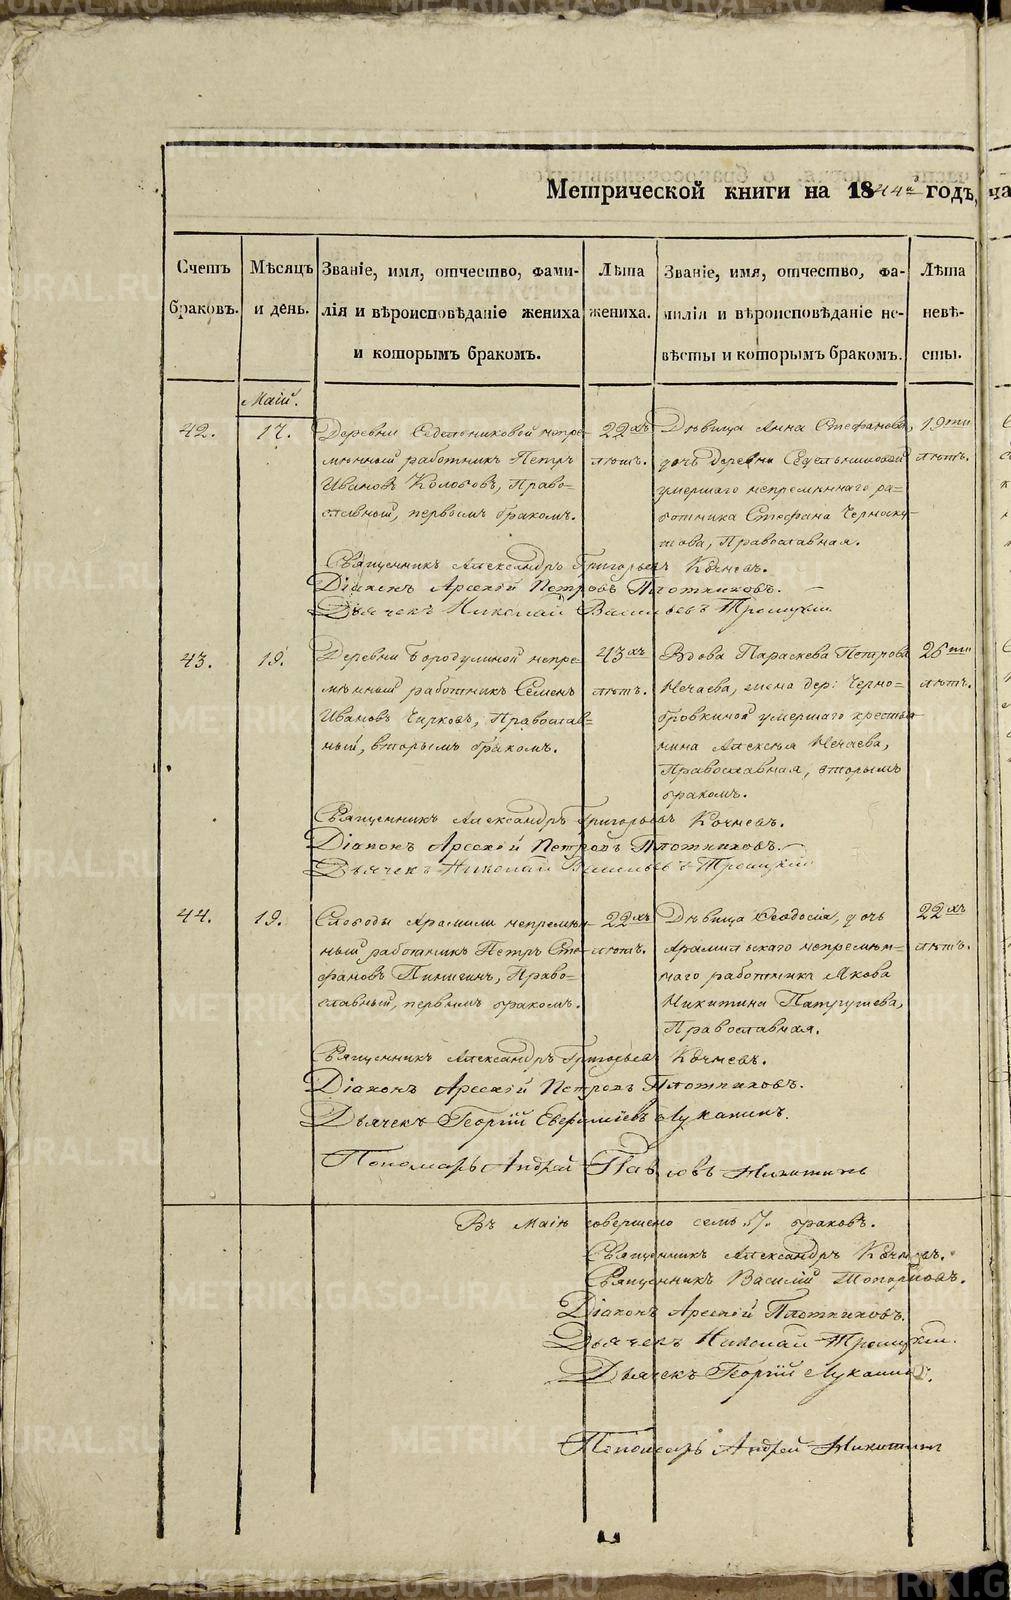 Метрической книги на 1844й годъ, ча
Счетъ браковъ.
Мѣсяцъ и день.
Званіе, имя, отчество, фами-
лія и вѣроисповѣданіе жениха
и которымъ бракомъ.
Лѣта
жениха.
Званіе, имя, отчество, фа-
милія и вѣроисповѣданіе не-
вѣсты и которымъ бракомъ.
Лѣта
невѣ-
сты.
Маій.
42.
17.
Деревни Седельниковой непре-
мѣнный работникъ Петръ
Ивановъ Колобовъ, Право-
славный, первымъ бракомъ.
22хъ
лѣтъ.
Дѣвица Анна Стефанова,
дочь деревни Седельниковой
умершаго непремѣннаго ра-
ботника Стефана Черноску-
това, Православная.
19ти
лѣтъ.
Священникъ Александръ Григорьевъ Кочневъ.
Діаконъ Арсеній Петровъ Плотниковъ.
Дьячекъ Николай Васильевъ Троицкій
43.
19.
Деревни Бородулиной непре-
мѣнный работникъ Семенъ
Ивановъ Чирковъ, Православ-
ный, вторымъ бракомъ.
43хъ
лѣтъ.
Вдова Параскева Петрова
Нечаева, жена дер: Черно-
бровкиной умершаго крестья-
нина Алексѣя Нечаева,
Православная, вторымъ
бракомъ.
26ти
лѣтъ.
Священникъ Александръ Григорьевъ Кочневъ.
Діаконъ Арсеній Петровъ Плотниковъ.
Дьячекъ Николай Васильевъ Троицкій
44.
19.
Слободы Арамили непремѣн-
ный работникъ Петръ Сте-
фановъ Пинигинъ, Право-
славный, первымъ бракомъ.
22хъ
лѣтъ.
Дѣвица Ѳеодосія, дочь
Арамильскаго непремѣн-
наго работника Якова
Никитина Патрушева,
Православная.
22хъ
лѣтъ.
Священникъ Александръ Григорьевъ Кочневъ.
Діаконъ Арсеній Петровъ Плотниковъ.
Дьячекъ Георгій Евфиміевъ Луканинъ.
Пономарь Андрей Павловъ Никитинъ
Въ Маіѣ совершено семь .7. браковъ.
Священникъ Александръ Кочневъ.
Священникъ Василій Топорковъ.
Діаконъ Арсеній Плотниковъ.
Дьячекъ Николай Троицкій.
Дьячекъ Георгій Луканинъ.
Пономарь Андрей Никитинъ
METRIKI.GASO-URAL.RU